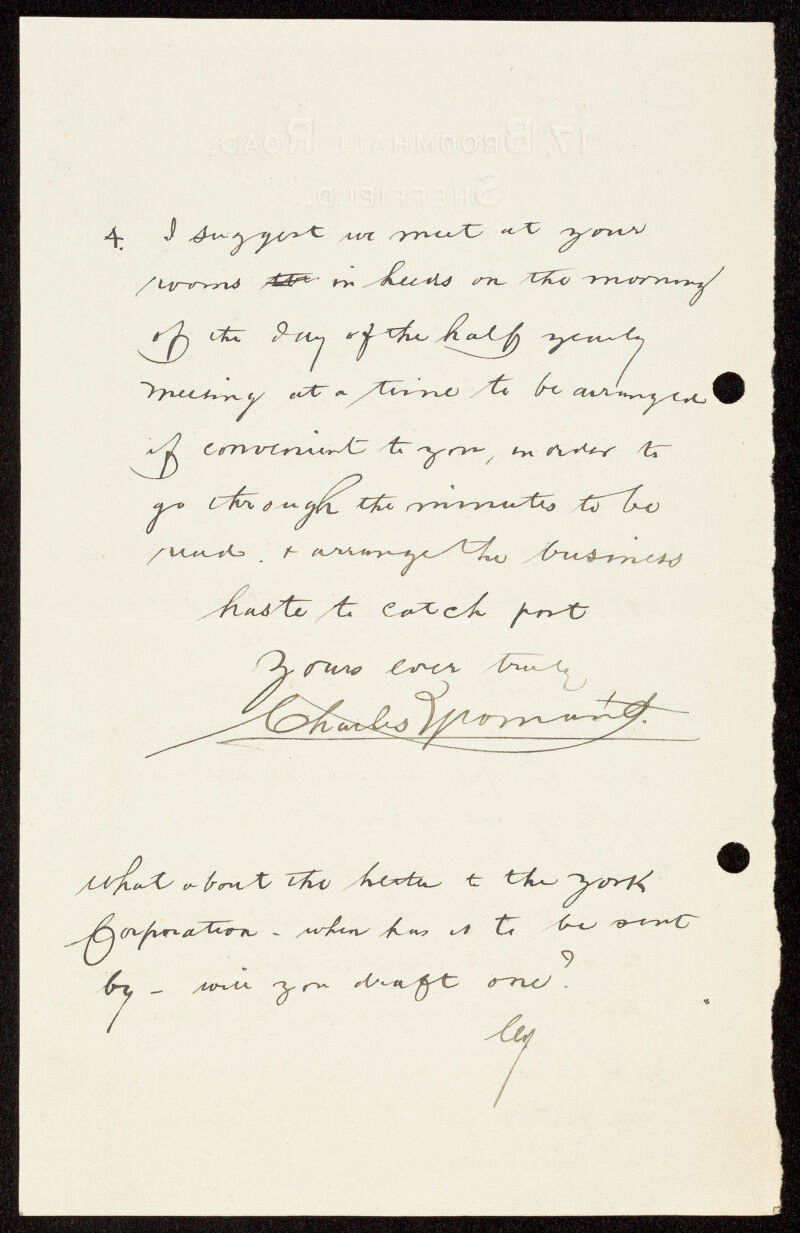 17, BROOMHALL ROAD,
SHEFFIELD.
4. I suggest we meet at your
rooms in Leeds on the morning
of the day of the half yearly
meeting at a time to be arranged
if convenient to you, in order to
go through the minutes to be
read. & arrange the business
haste to catch post
Yours ever truly
Charles
what about the letter to the York
Corporation - when has it to be sent
by - will you draft one?